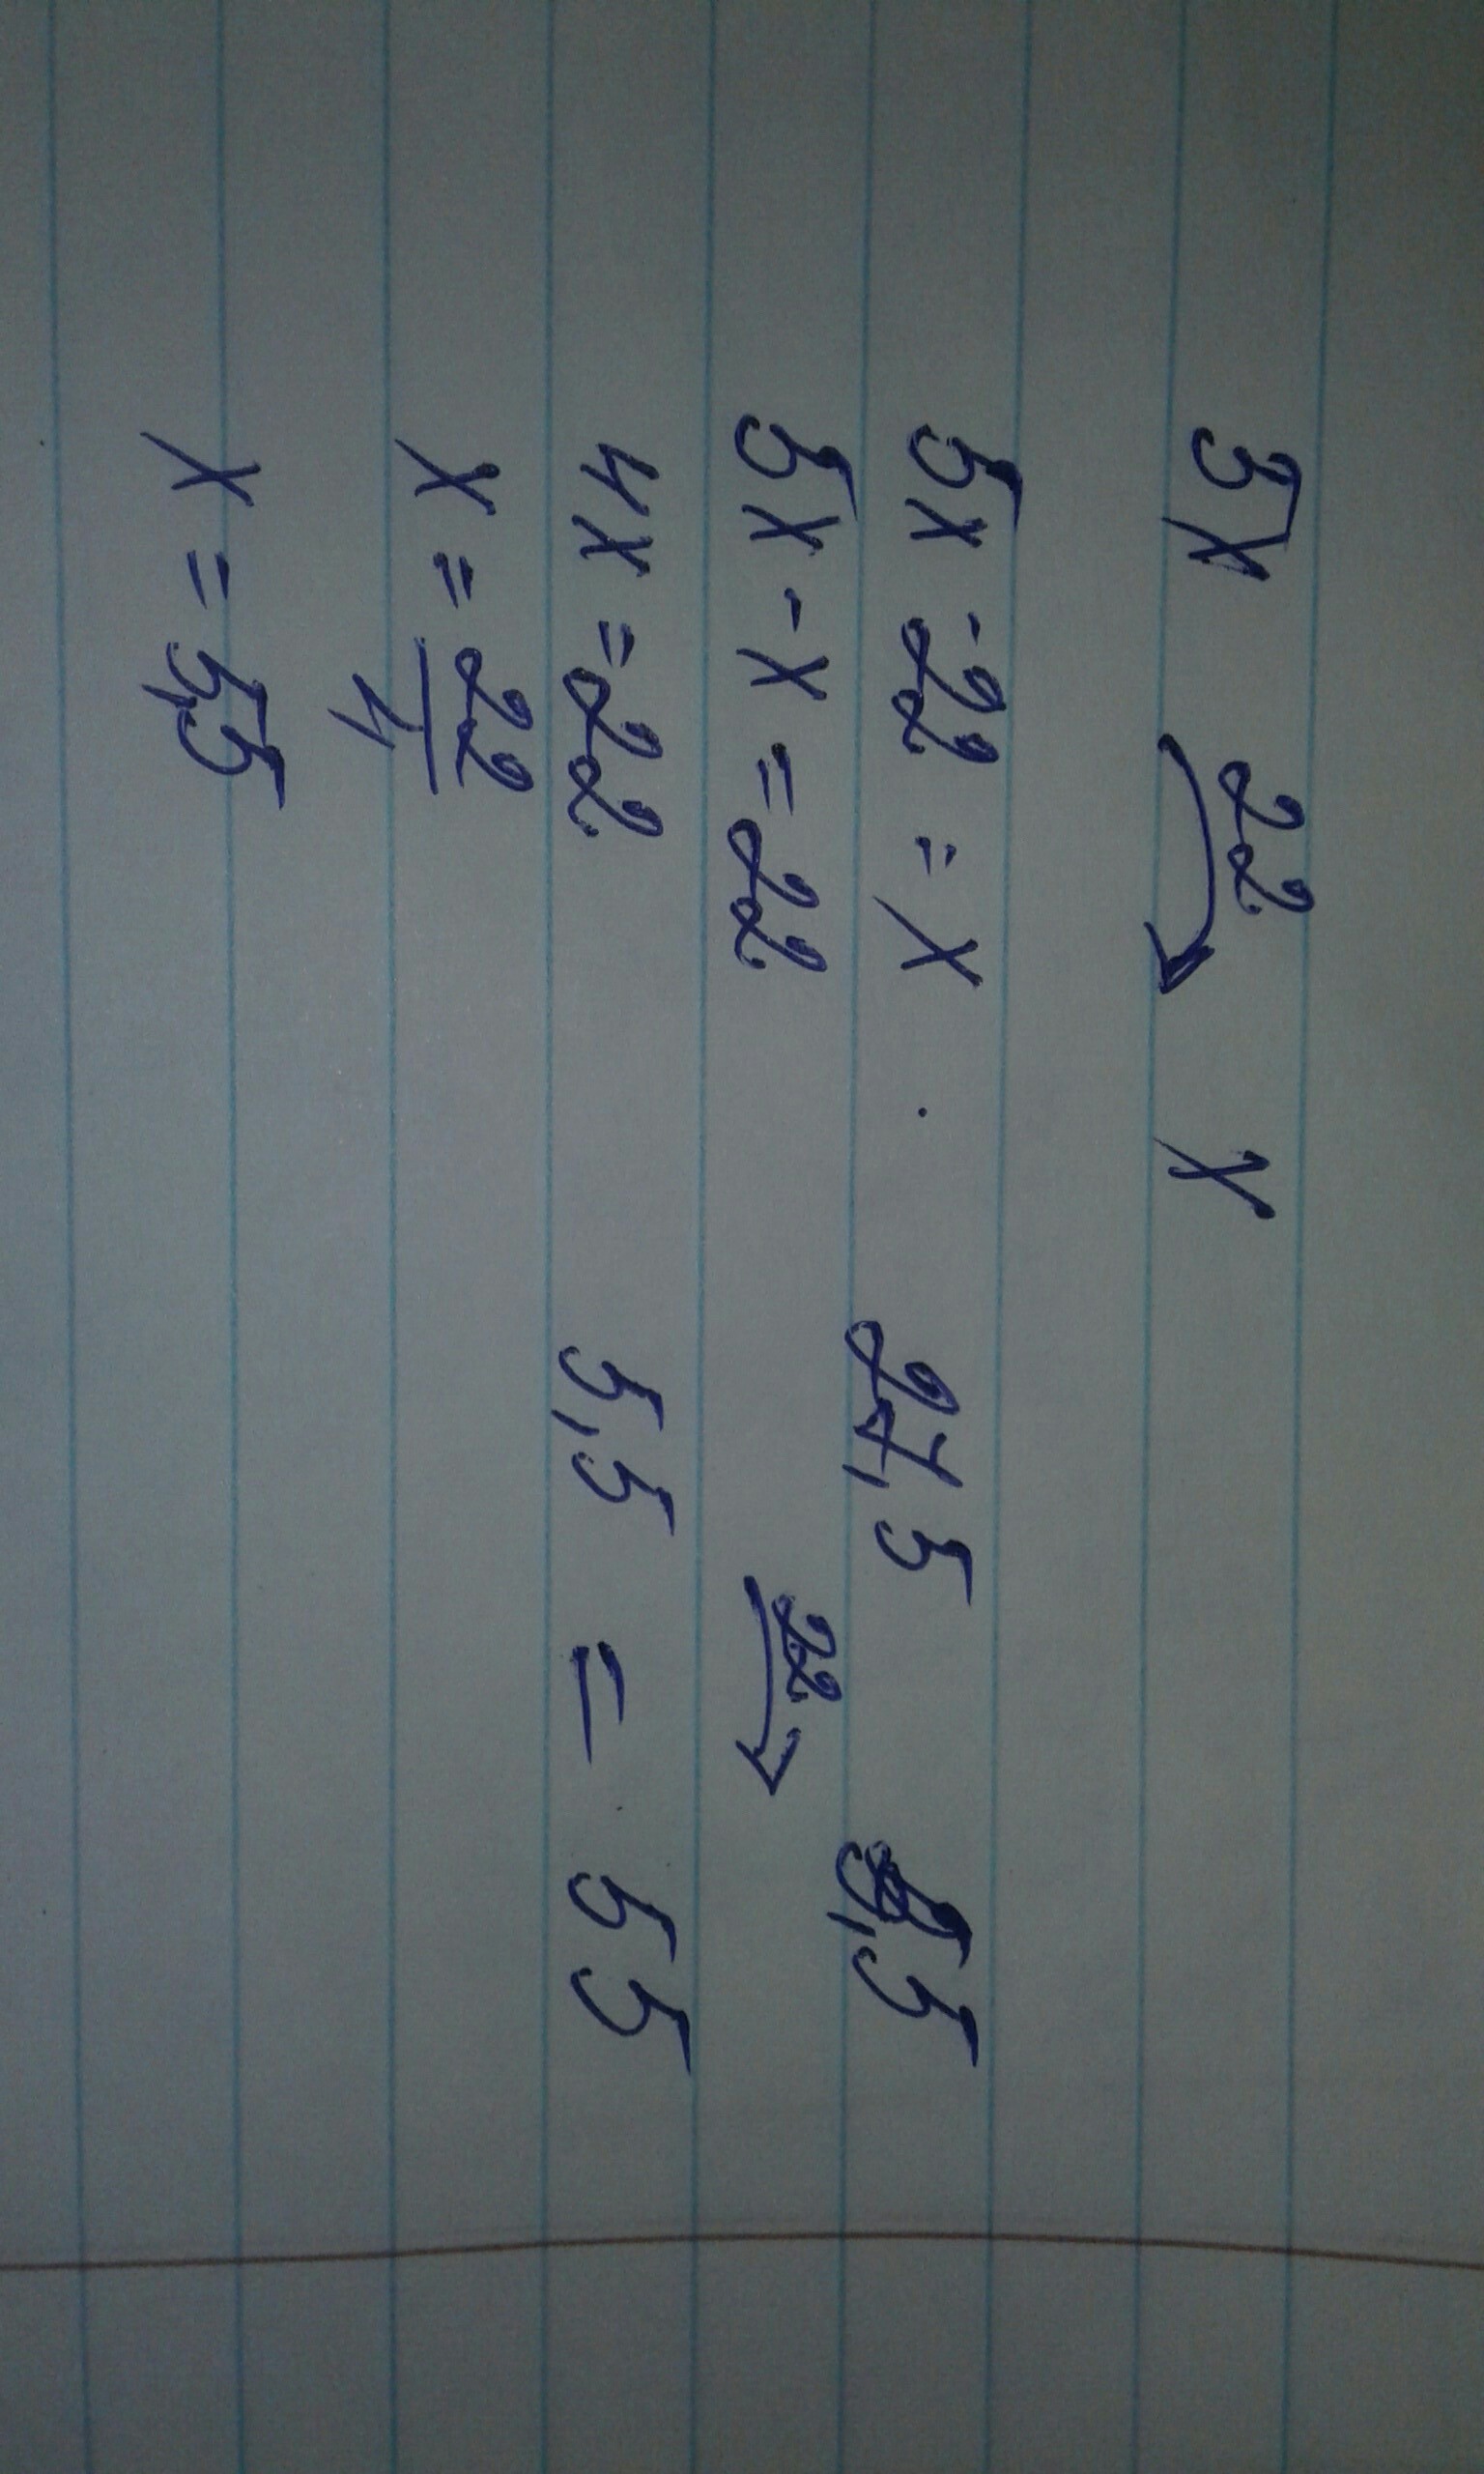 5x 22 x
5x - 22 = x
5x - x = 22
4x = 22
x = 22/4
x = 5,5
27,5 5,5
22
5,5 = 55